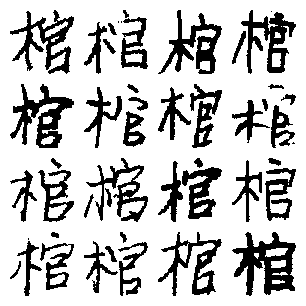 棺棺棺棺
棺棺棺棺
棺棺棺棺
棺棺棺棺